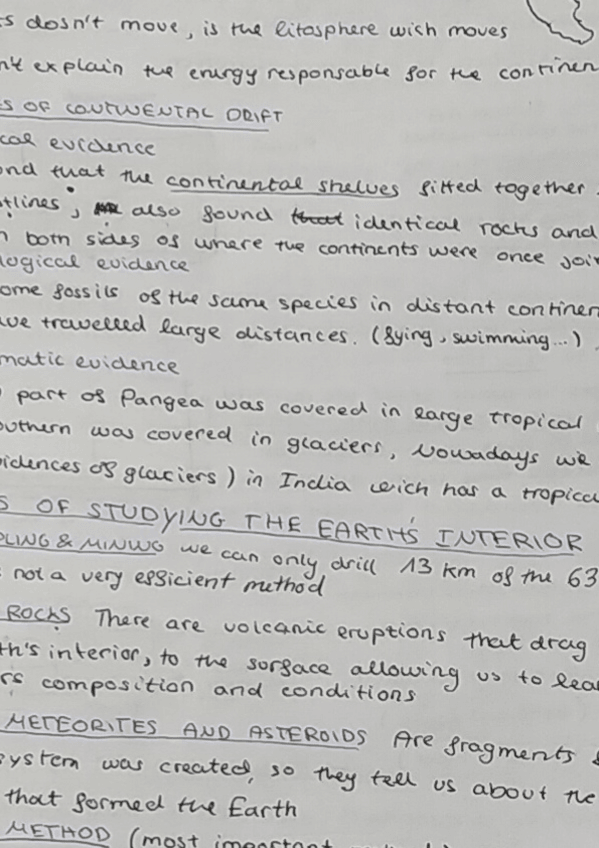 s dosn't move, is the litosphere wich moves
n't explain the energy responsable for the continen
S OF CONTINENTAL DRIFT
cal evidence
ond that the continental shelves fitted together
tlines; also found that identical rocks and
n both sides of where the continents were once joi
logical evidence
ome fossils of the same species in distant continen
ave travelled large distances. (flying, swimming...)
matic evidence
part of Pangea was covered in large tropical
outhern was covered in glaciers, Nowadays we
idences of glaciers) in India wich has a tropica
S OF STUDYING THE EARTH'S INTERIOR
PLING & MINING we can only drill 13 km of the 63
not a very efficient method
ROCKS There are volcanic eruptions that drag
th's interior, to the surface allowing us to lea
rs composition and conditions
METEORITES AND ASTEROIDS Are fragments
system was created, so they tell us about the
that formed the Earth
METHOD (most important